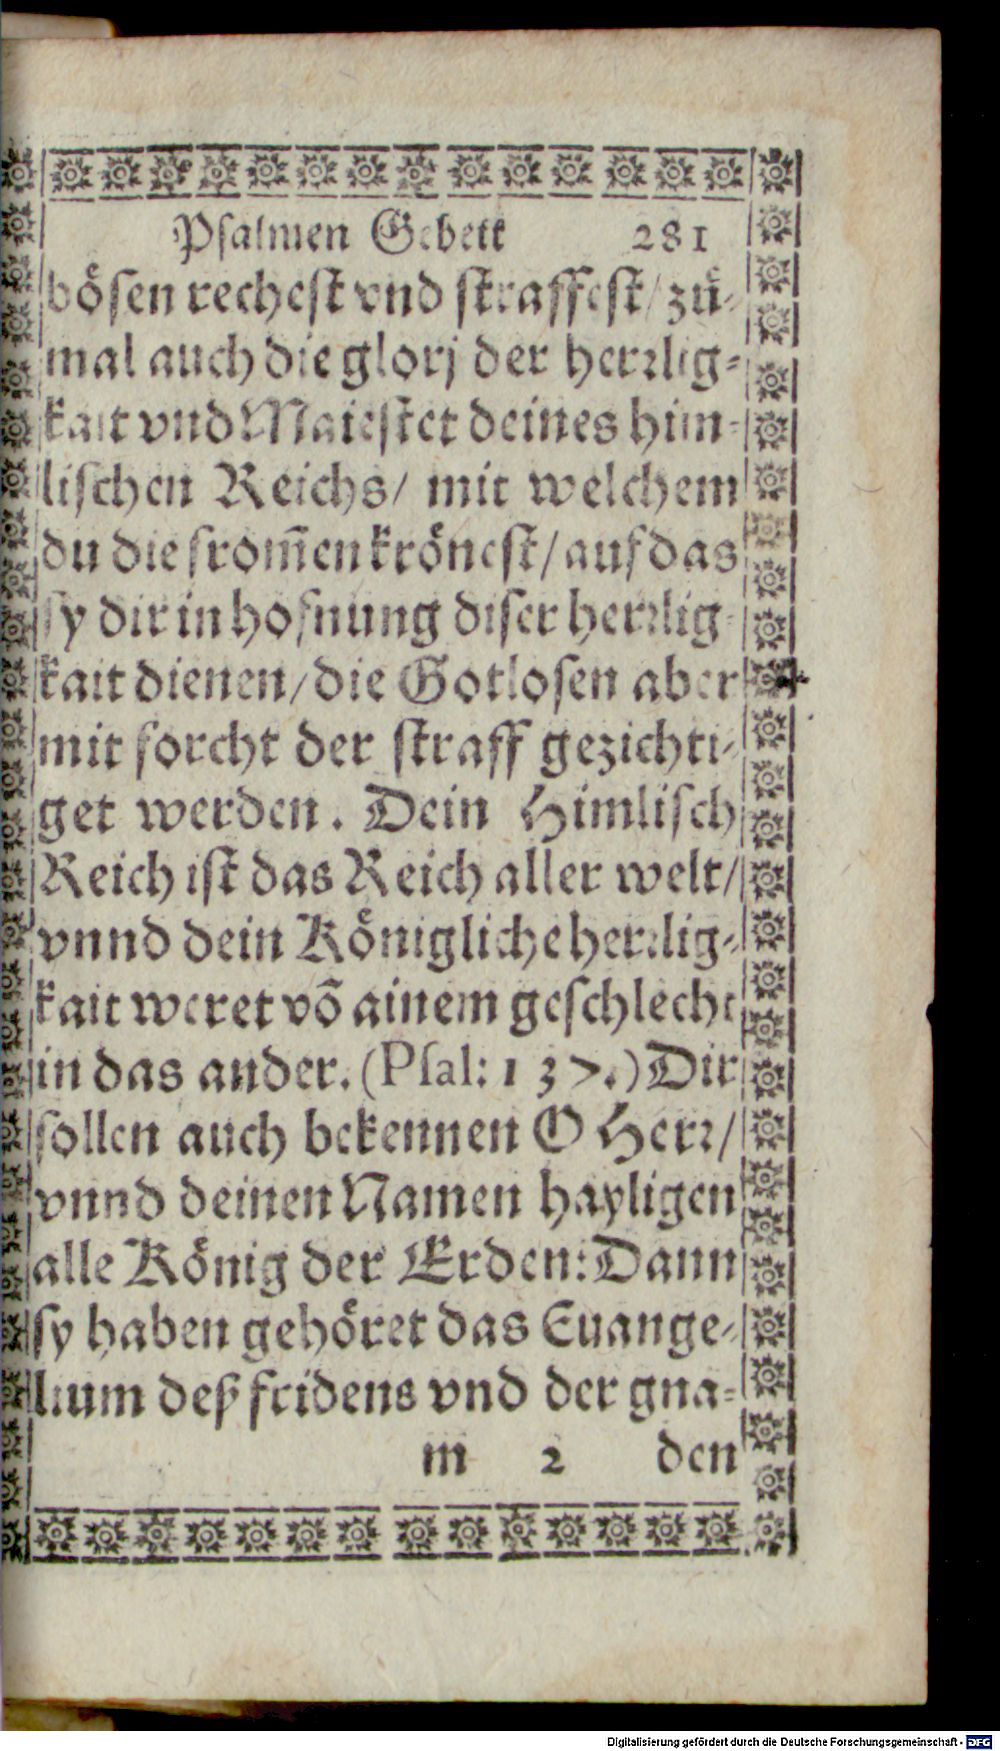 Psalmen Gebett 281
bösen rechest vnd straffest/ zů-
mal auch die glorj der herrlig-
kait vnd Maiestet deines him-
lischen Reichs/ mit welchem
du die from̃en krönest/ auf das
sy dir in hofnung diser herrlig-
kait dienen/ die Gotlosen aber
mit forcht der straff gezichti-
get werden. Dein Himlisch
Reich ist das Reich aller welt/
vnnd dein Königliche herrlig-
kait weret võ ainem geschlecht
in das ander. (Psal: 137.) Dir
sollen auch bekennen O Herr/
vnnd deinen Namen hayligen
alle König der Erden: Dann
sy haben gehöret das Euange-
lium deß fridens vnd der gna-
m 2 den
Digitalisierung gefördert durch die Deutsche Forschungsgemeinschaft - DFG